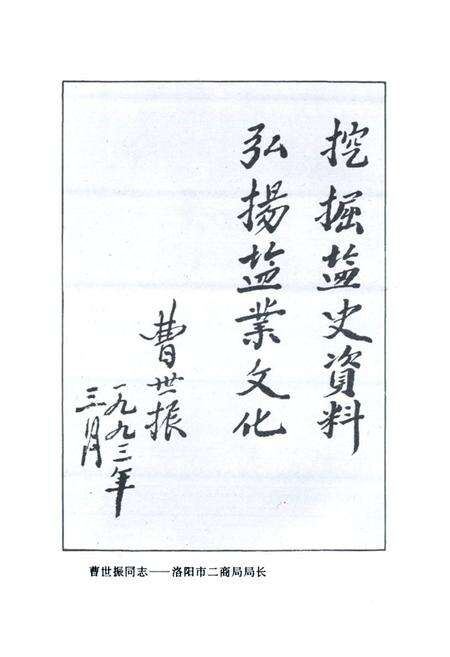 挖掘盐史資料
弘揚盐業文化
曹世振
一九九三年
三月
曹世振同志——洛阳市二商局局长